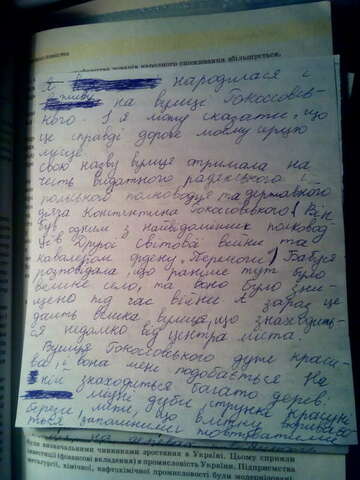 виробництва товарів народного споживання збільшується.
Я народилася і
живу на вулиці Рокоссовсь-
кого. І я можу сказати, що
це справді дороге моєму серцю
місце.
Свою назву вулиця отримала на
честь видатного радянського і
польського полководця та державного
діяча Константина Рокоссовського. Він
був одним з найвідоміших полковод
ців Другої Світової війни та
кавалером ордену "Перемоги". Бабуся
розповідала, що раніше тут було
велике село, та воно було зни-
щено під час війни. А зараз це
дають велика вулиця, що знаходить-
ся недалеко від центра міста.
Вулиця Рокоссовського дуже краси-
ва і вона мені подобається. На
ній знаходиться багато дерев:
могли дуби, стрункі красуні
берези, липи, що влітку
запашними
були визначальними чинниками зростання в Україні. Цьому сприяли
інвестиції (фінансові вкладення) в промисловість України. Підприємства
металургії, хімічної, нафтохімічної промисловості були модернізовані